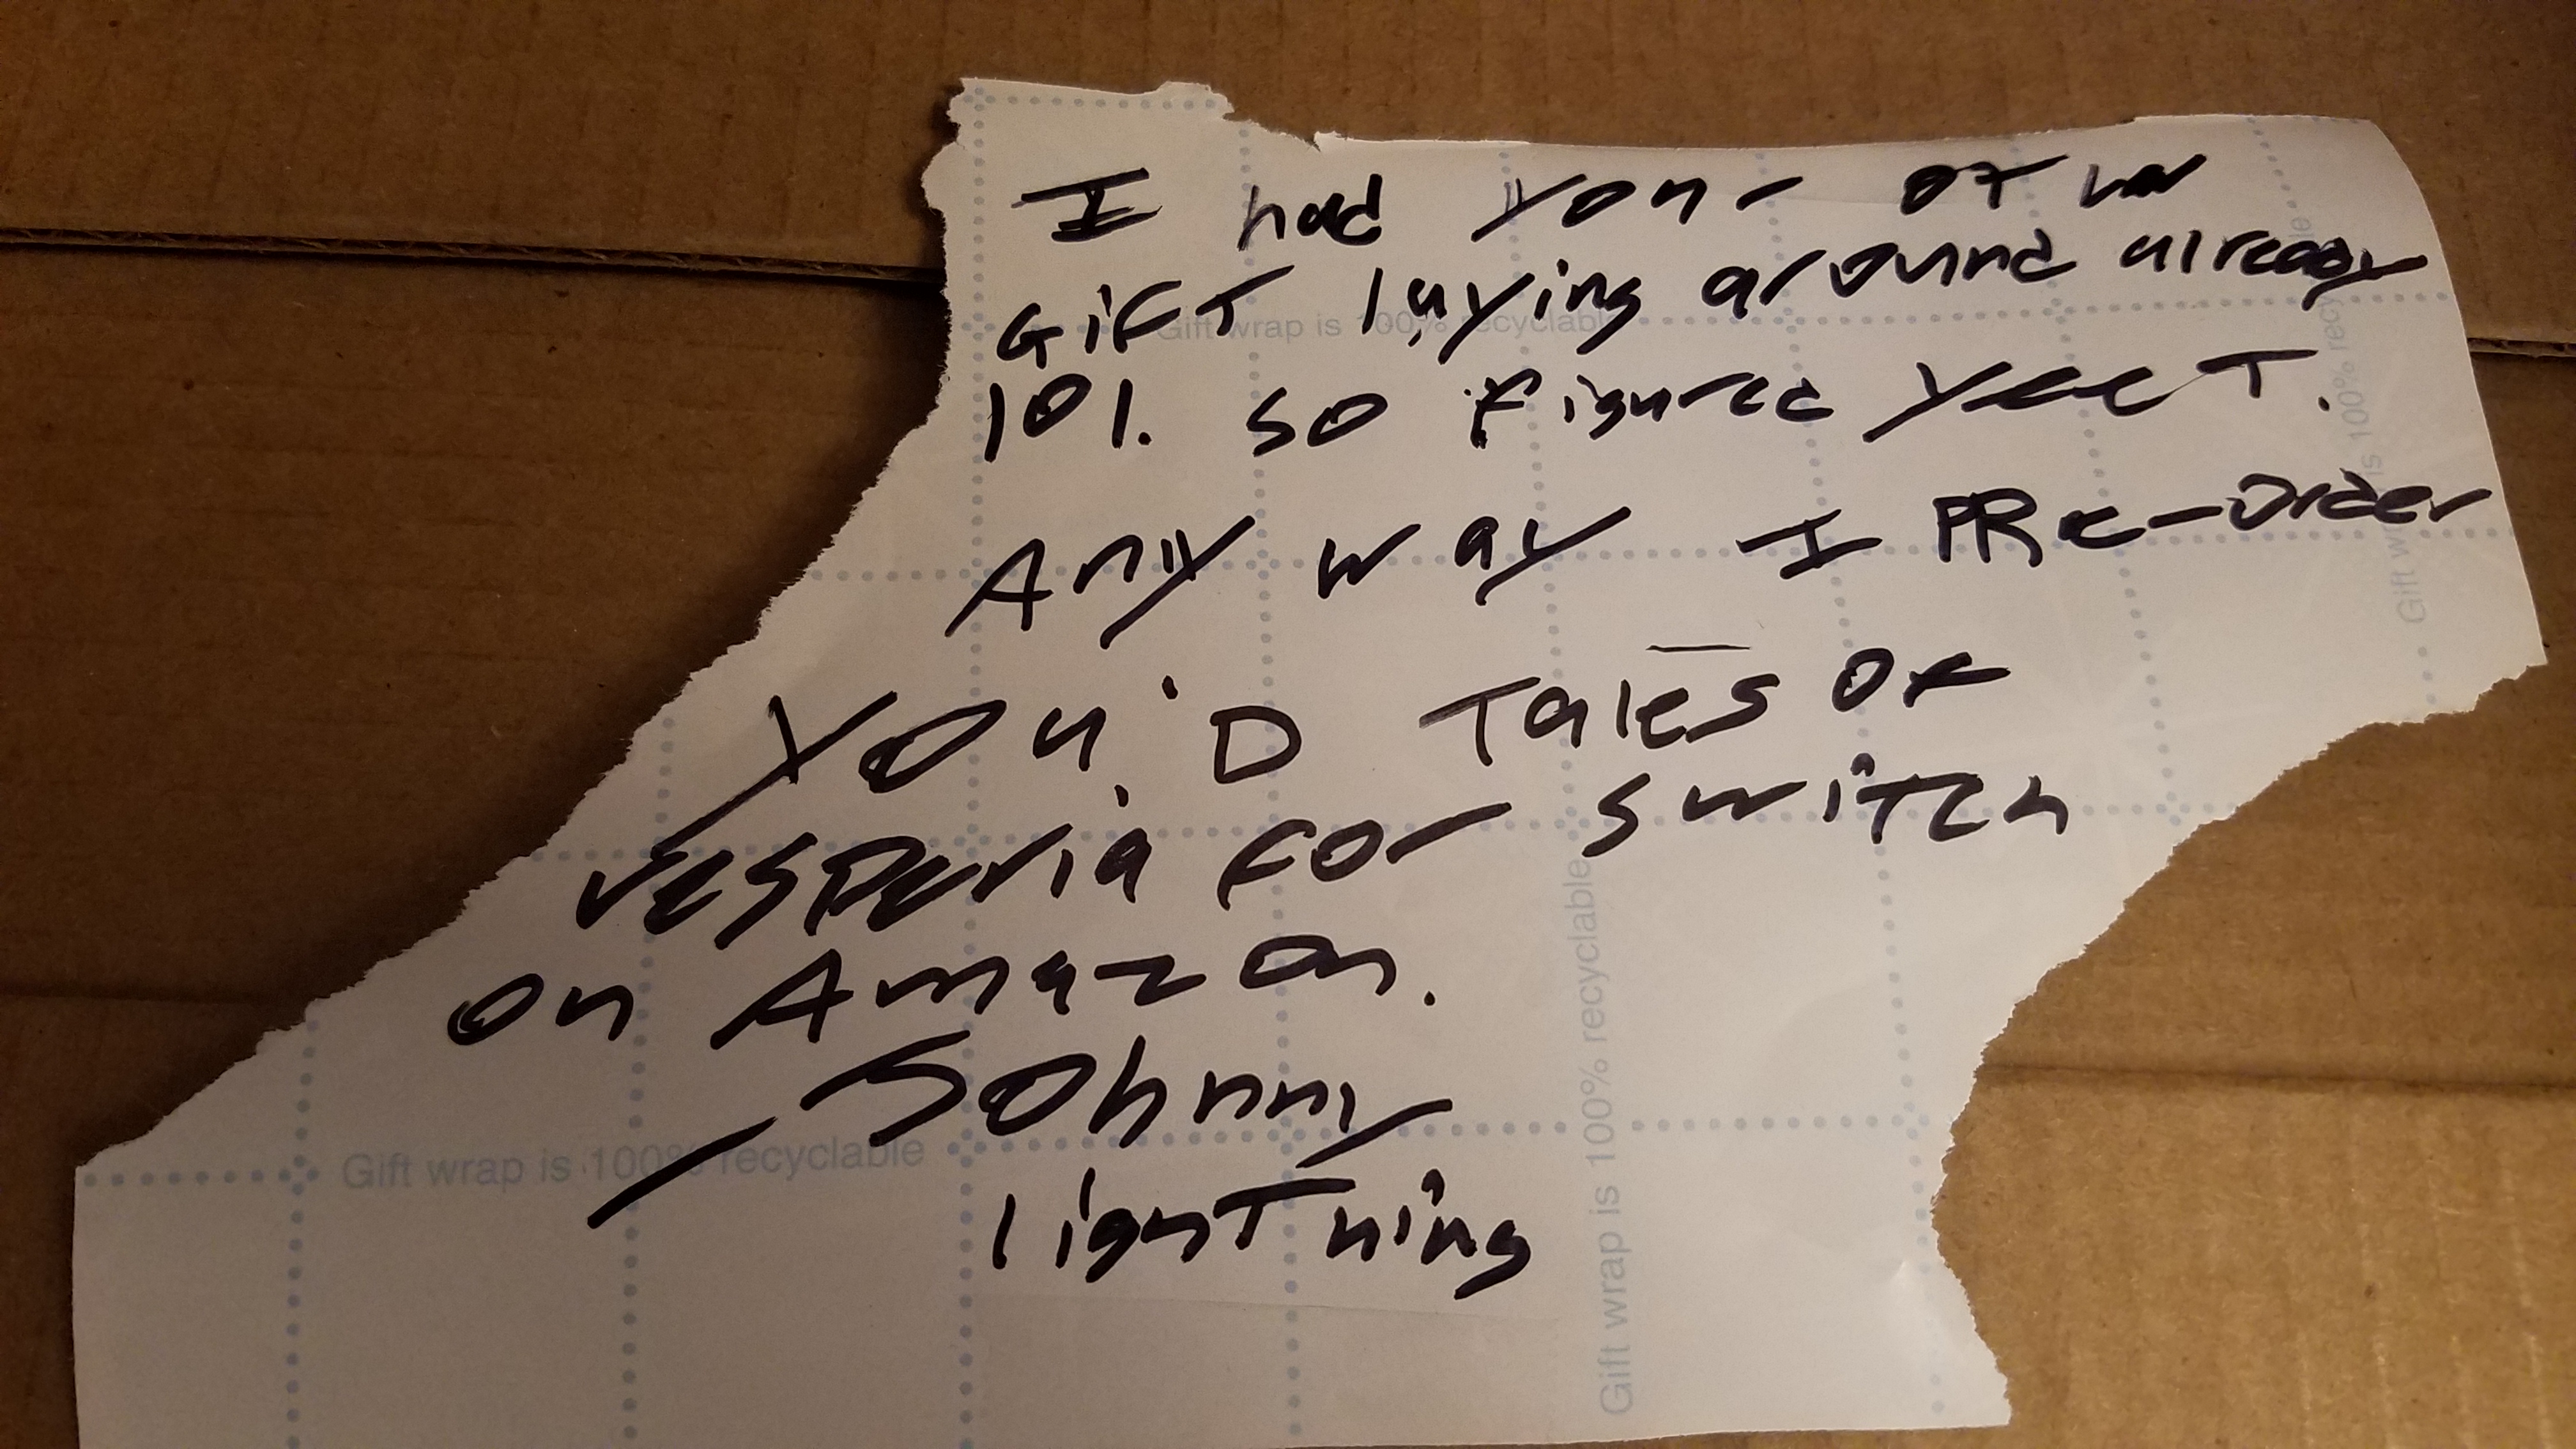 I had your other
Gift laying around already
lol. So figured yeet.
Any way I PRe-order
you'D Tales Of
Vesperia for switch
on Amazon.
- Johnny
lightning
Gift wrap is 100% recyclable
Gift wrap is 100% recyclable
Gift wrap is 100% recyclable
Gift wr is 100% recyclable